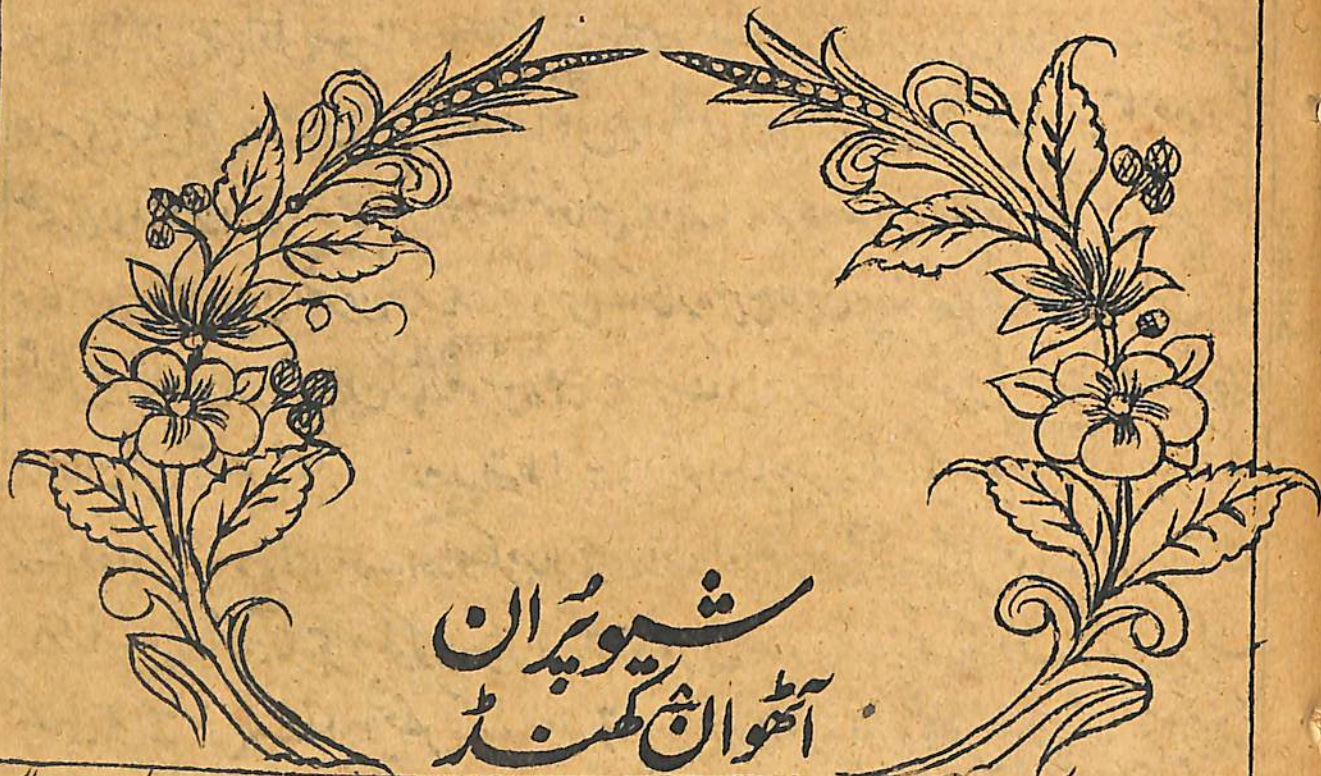 شیوپُران
آٹھواں کھنڈ